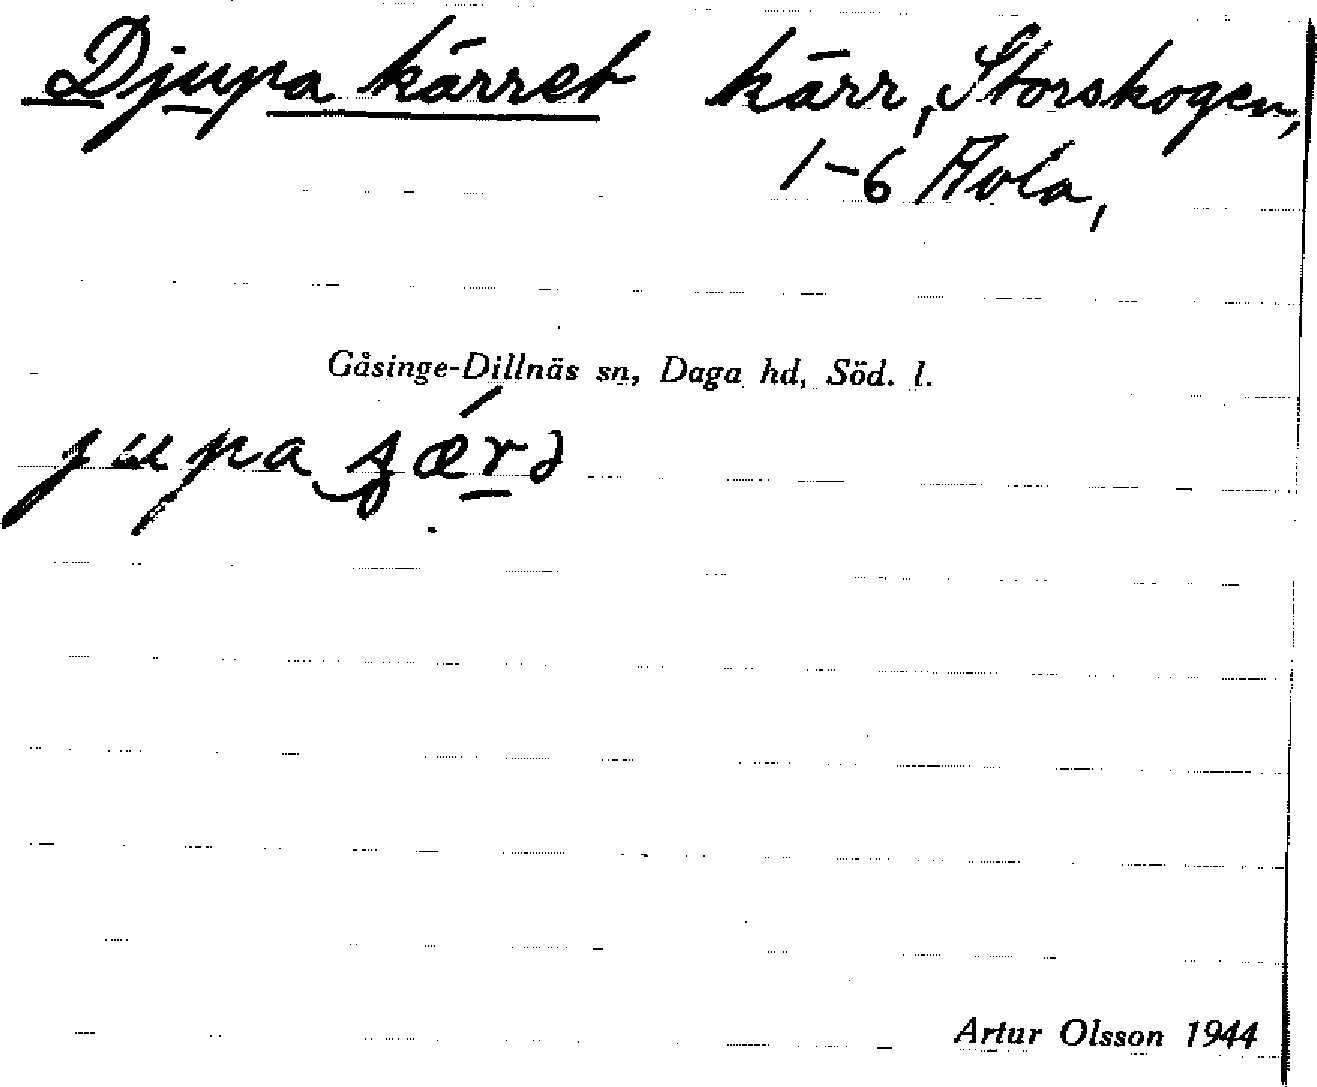 Djupa kärret kärr, Storskogen,
1-6 Hola,
Gåsinge-Dillnäs sn, Daga hd, Söd. l.
Artur Olsson 1944